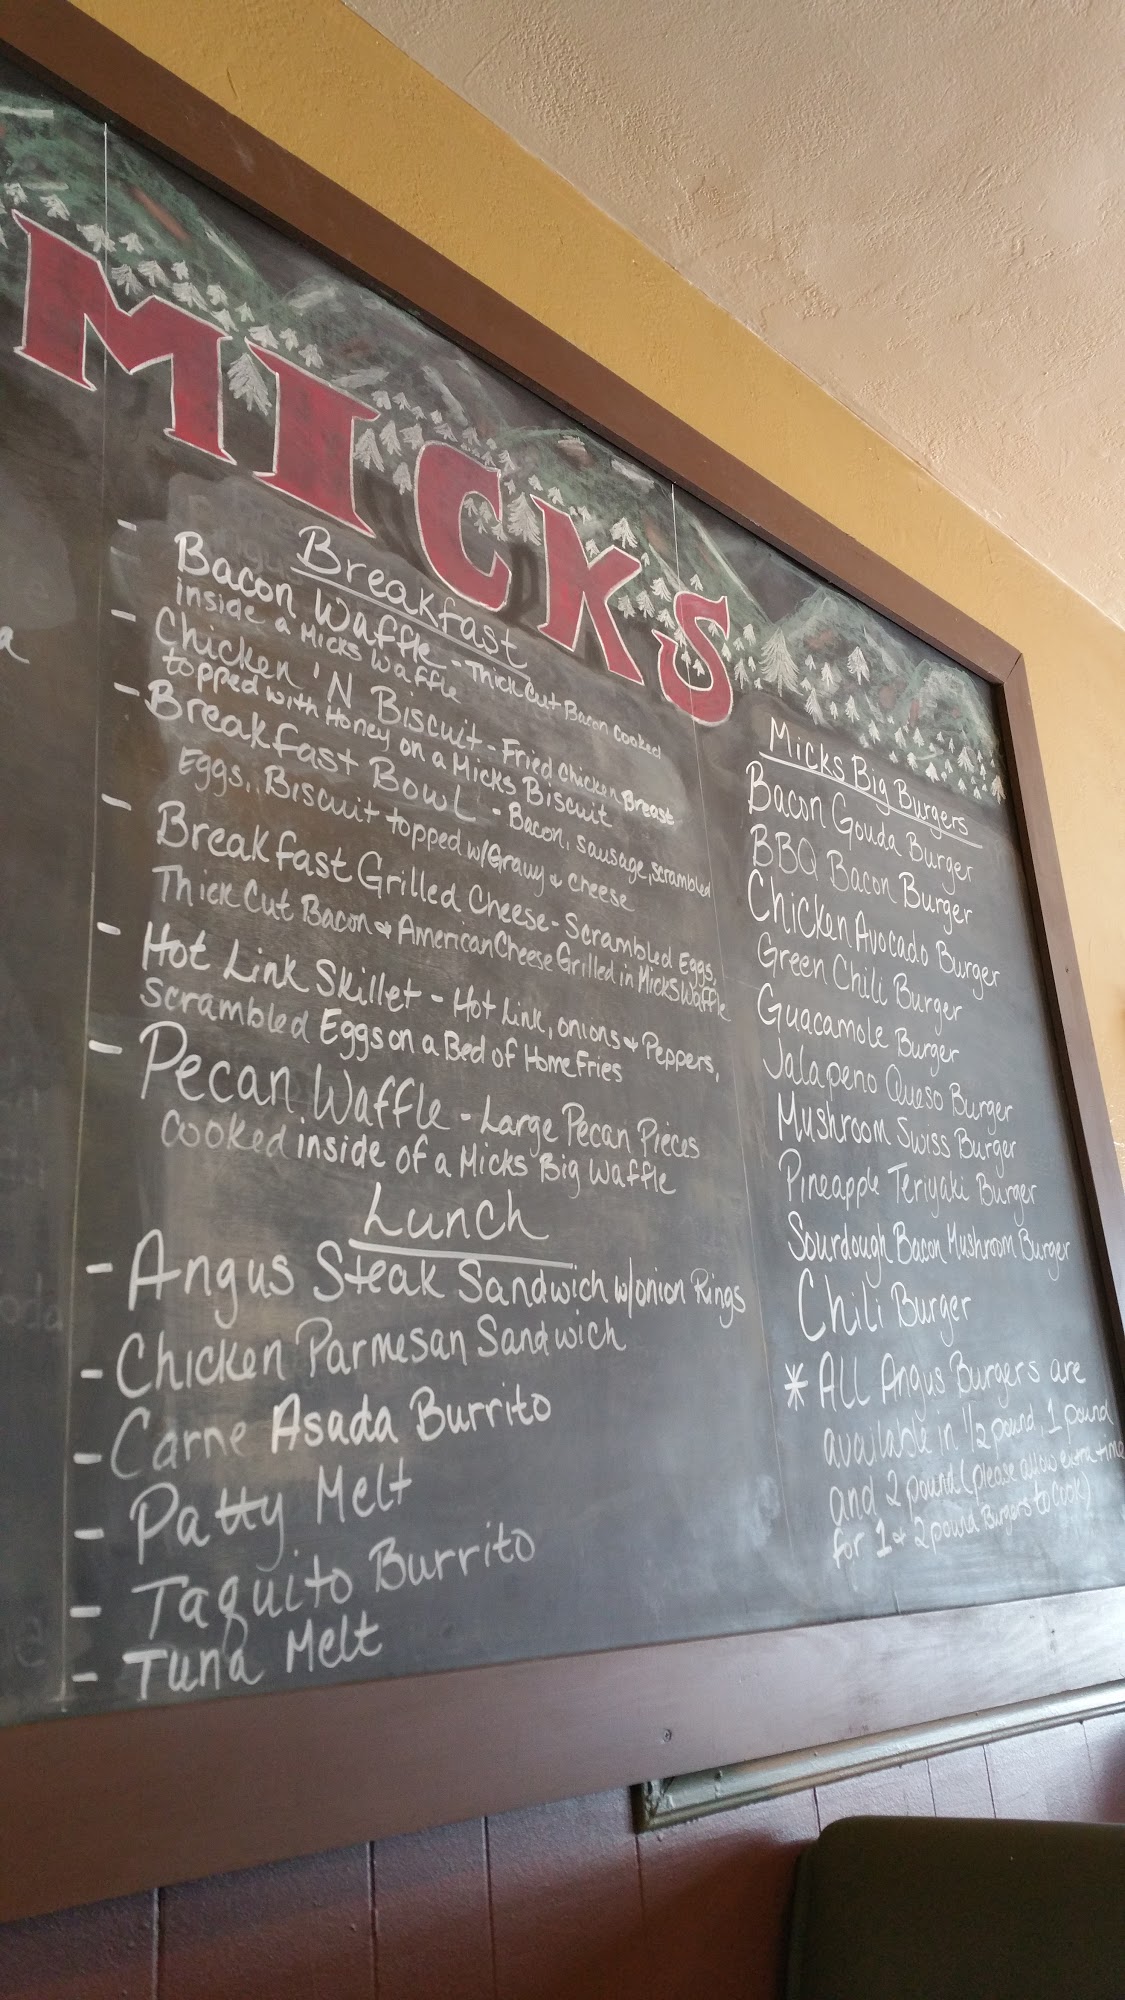 MICKS
Breakfast
- Bacon Waffle - Thick Cut Bacon cooked
inside a Micks Waffle
- Chicken 'N Biscuit - Fried Chicken Breast
topped with Honey on a Micks Biscuit
- Breakfast Bowl - Bacon, sausage, scrambled
Eggs, Biscuit topped w/Gravy & cheese
- Breakfast Grilled Cheese - Scrambled Eggs,
Thick Cut Bacon & American Cheese Grilled in Micks Waffle
- Hot Link Skillet - Hot Link, onions & Peppers,
Scrambled Eggs on a Bed of Home Fries
- Pecan Waffle - Large Pecan Pieces
Cooked inside of a Micks Big Waffle
Lunch
- Angus Steak Sandwich w/onion Rings
- Chicken Parmesan Sandwich
- Carne Asada Burrito
- Patty Melt
- Taquito Burrito
- Tuna Melt
Micks Big Burgers
Bacon Gouda Burger
BBQ Bacon Burger
Chicken Avocado Burger
Green Chili Burger
Guacamole Burger
Jalapeno Queso Burger
Mushroom Swiss Burger
Pineapple Teriyaki Burger
Sourdough Bacon Mushroom Burger
Chili Burger
* ALL Angus Burgers are
available in 1/2 pound, 1 pound
and 2 pound (please allow extra time
for 1 & 2 pound Burgers to cook)